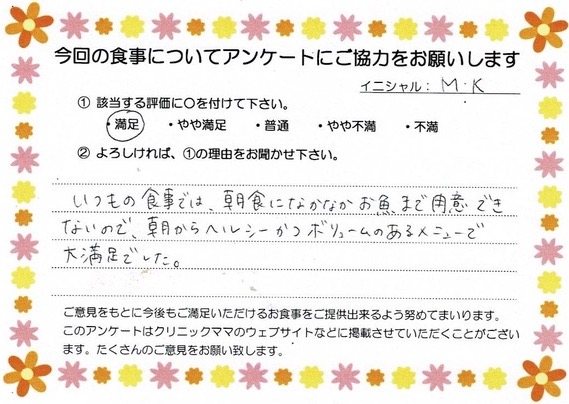 今回の食事についてアンケートにご協力をお願いします
イニシャル： M・K
① 該当する評価に〇を付けて下さい。
・満足 ・やや満足 ・普通 ・やや不満 ・不満
② よろしければ、①の理由をお聞かせ下さい。
いつもの食事では、朝食になかなかお魚まで用意でき
ないので、朝からヘルシーかつボリュームのあるメニューで
大満足でした。
ご意見をもとに今後もご満足いただけるお食事をご提供出来るよう努めてまいります。
このアンケートはクリニックママのウェブサイトなどに掲載させていただくことがござい
ます。たくさんのご意見をお願い致します。